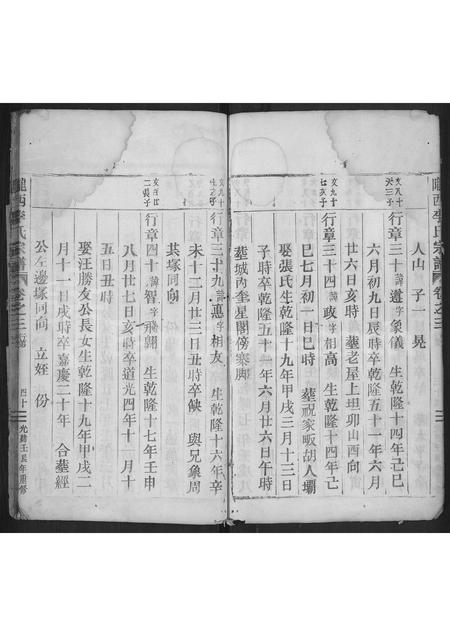 隴西李氏宗譜 卷之三
人山 子一 晃
行章三十 諱道 字象儀 生乾隆十四年己巳
六月初九日辰時卒乾隆五十一年六月
廿六日亥時 葬老屋上坦卯山酉向
行章三十四 諱政 字相高 生乾隆十四年己
巳七月初一日巳時 葬祝家畈胡人壩
娶張氏生乾隆十九年甲戌三月十三日
子時卒乾隆五十一年六月廿六日午時
葬城內奎星閣傍寨脚
行章三十九 諱惠 字相友 生乾隆十六年辛
未十二月廿三日丑時卒缺 與兄象周
共塚同向
行章四十 諱智 字飛翺 生乾隆十七年壬申
八月廿七日亥時卒道光四年十一月十
五日丑時
娶汪勝友公長女生乾隆十九年甲戌二
月十一日戌時卒嘉慶二十年 合葬經
公左邊塚同向 立姪 份
隴西李氏宗譜 卷之三
四十 光緒壬辰年重修